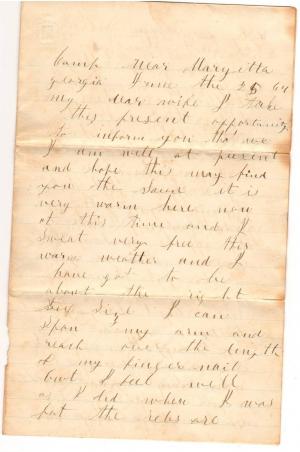 Camp Near Maryetta
georgia June the 25 64
my dear wife I take
this present opportunity
to inform you that we
I am well at present
and hope this may find
you the same it is
very warm here now
at this time and I
sweat very free this
warm weather and I
have got to be
about the right
size I can
span my arm and
reach over the length
of my finger nail
but I feel well
as I did when I was
fat the rebs are